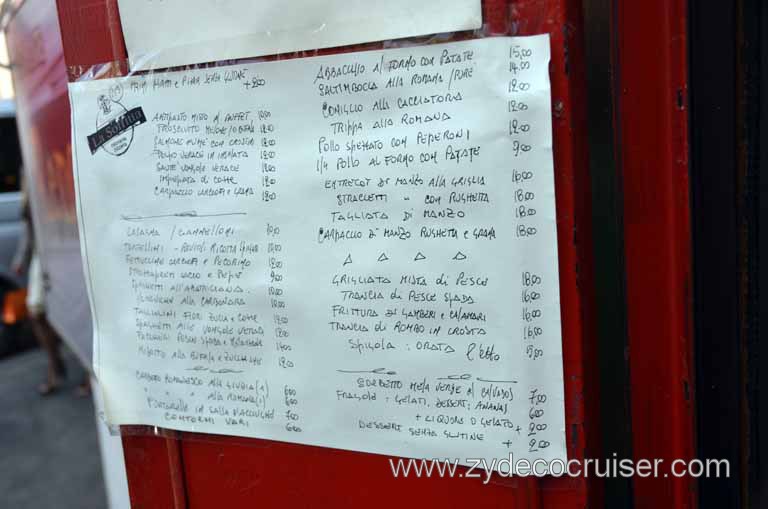 + 2,00
La Soffitta
ANTIPASTO MISTO AL BUFFET 10,00
PROSCIUTTO MELONE/O BUFALA 12,00
SALMONE FUMÉ CON CROSTINI 12,00
POLPO VERACE IN INSALATA 12,00
SAUTÉ VONGOLE VERACI 12,00
IMPEPATA DI COZZE 12,00
CARPACCIO
LASAGNA / CANNELLONI 10,00
TORTELLINI - RAVIOLI RICOTTA SPINACI
FETTUCCINE
SPAGHETTI ALL'AMATRICIANA
ALLA CARBONARA
TAGLIOLINI FIORI ZUCCA e COZZE
SPAGHETTI ALLE VONGOLE VERACI
PESCE SPADA e
RISOTTO ALLA
CARCIOFO ROMANESCO ALLA GIUDIA (1) 6,00
" " ALLA ROMANA (1) 6,00
PUNTARELLE IN SALSA D'ACCIUGHE 7,00
CONTORNI VARI 6,00
ABBACCHIO AL FORNO CON PATATE 15,00
SALTIMBOCCA ALLA ROMANA / PURÉ 14,00
CONIGLIO ALLA CACCIATORA 12,00
TRIPPA ALLA ROMANA 12,00
POLLO SPEZZATO CON PEPERONI 12,00
1/4 POLLO AL FORNO CON PATATE 9,00
ENTRECOT DI MANZO ALLA GRIGLIA 16,00
STRACCETTI " CON RUGHETTA 18,00
TAGLIATA DI MANZO 18,00
CARPACCIO DI MANZO RUGHETTA e GRANA 18,00
GRIGLIATA MISTA di PESCE 18,00
TRANCIA di PESCE SPADA 16,00
FRITTURA DI GAMBERI e CALAMARI 16,00
TRANCIA DI ROMBO IN CROSTA 16,00
SPIGOLA : ORATA l'etto 5,00
SORBETTO MELA VERDE AL CALVADOS 7,00
FRAGOLE : GELATI, DESSERT : ANANAS 6,00
+ LIQUORE O GELATO + 2,00
DESSERT SENZA GLUTINE + 2,00
www.zydecocruiser.com